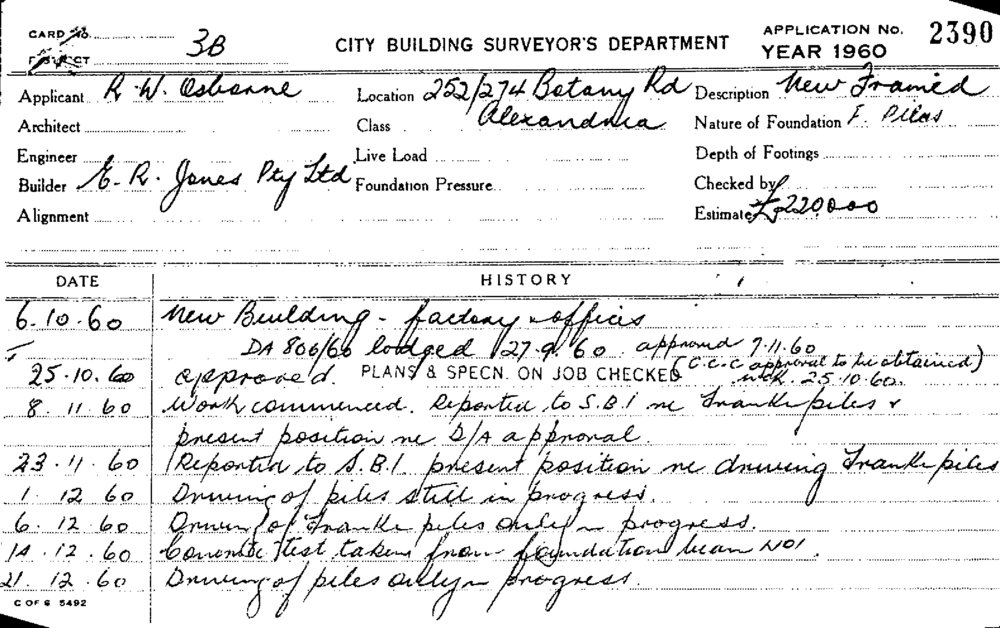 CARD No. 3B CITY BUILDING SURVEYOR'S DEPARTMENT APPLICATION No. 2390
DISTRICT YEAR 1960
Applicant R. W. Osborne Location 252/274 Botany Rd Description New Framed
Architect Class Alexandria Nature of Foundation F. Piles
Engineer Live Load Depth of Footings
Builder E. R. Jones Pty Ltd Foundation Pressure Checked by
Alignment Estimate £220000
DATE HISTORY
6.10.60 New Building - factory & offices
DA 806/60 lodged 27.9.60 approved 7.11.60
25.10.60 approved. PLANS & SPECN. ON JOB CHECKED (C.C.C approval to be obtained)
25.10.60.
8.11.60 Work commenced. Reported to S.B.I re Franki piles &
present position re D/A approval.
23.11.60 Reported to S.B.I. present position re driving Franki piles
1.12.60 Driving of piles still in progress.
6.12.60 Driving of Franki piles only in progress.
14.12.60 Concrete test taken from foundation beam No1.
21.12.60 Driving of piles only in progress.
C OF S 5492